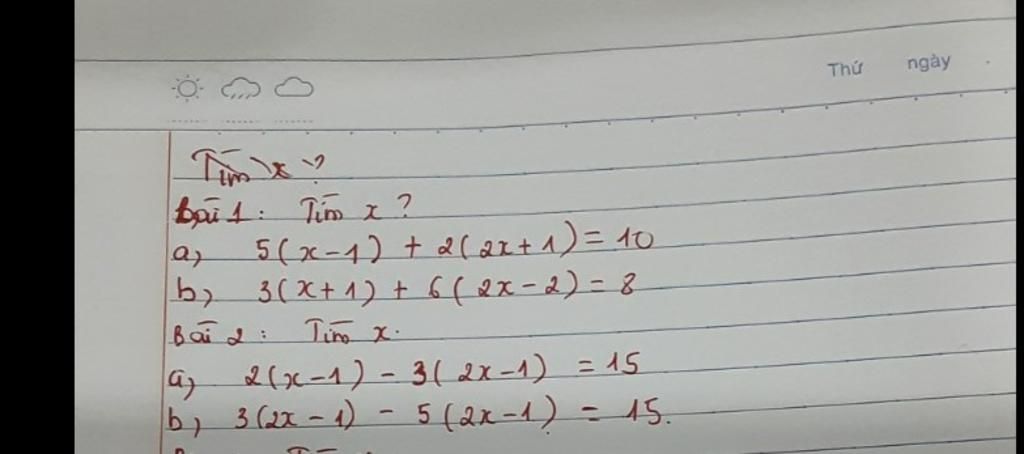 Thứ ngày
Tìm x?
Bài 1: Tìm x?
a, 5(x-1) + 2(2x+1) = 10
b, 3(x+1) + 6(2x-2) = 8
Bài 2: Tìm x.
a, 2(x-1) - 3(2x-1) = 15
b, 3(2x-1) - 5(2x-1) = 15.